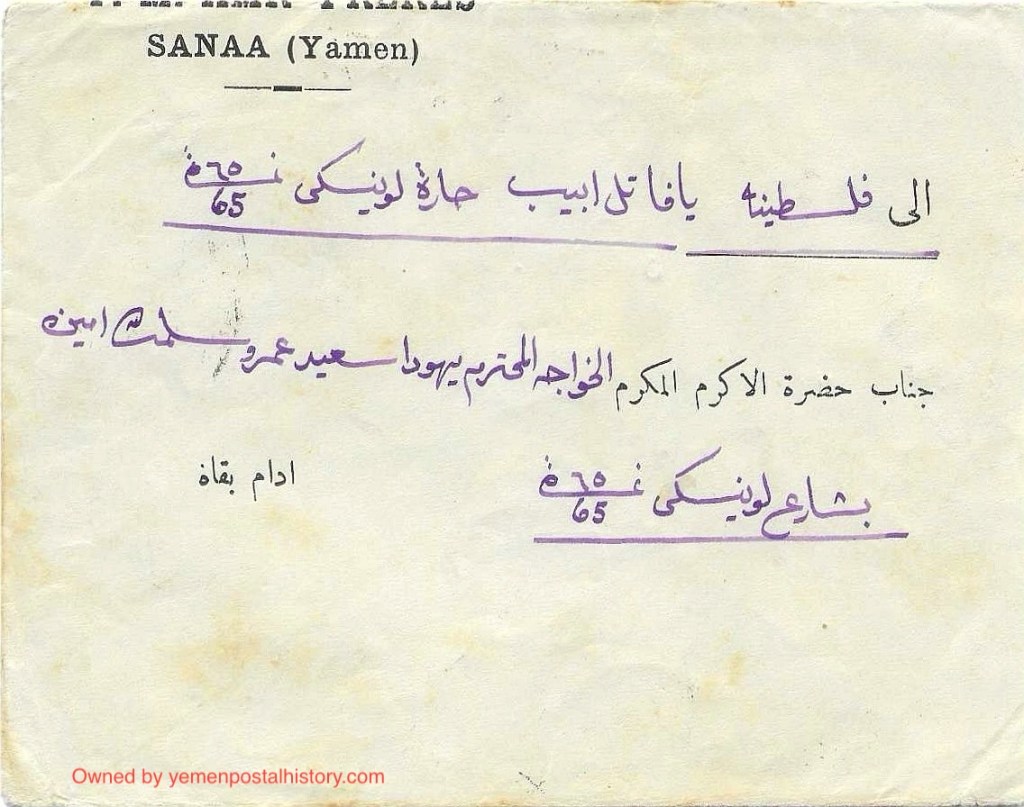 FRERES
SANAA (Yamen)
الى فلسطينه يافا تل ابيب حارة لوينسكى نمرة ٦٥
65
جناب حضرة الاكرم المكرم الخواجه المحترم يهودا سعيد عمرو سلمت امين
بشارع لوينسكى نمرة ٦٥
65
ادام بقاه
Owned by yemenpostalhistory.com